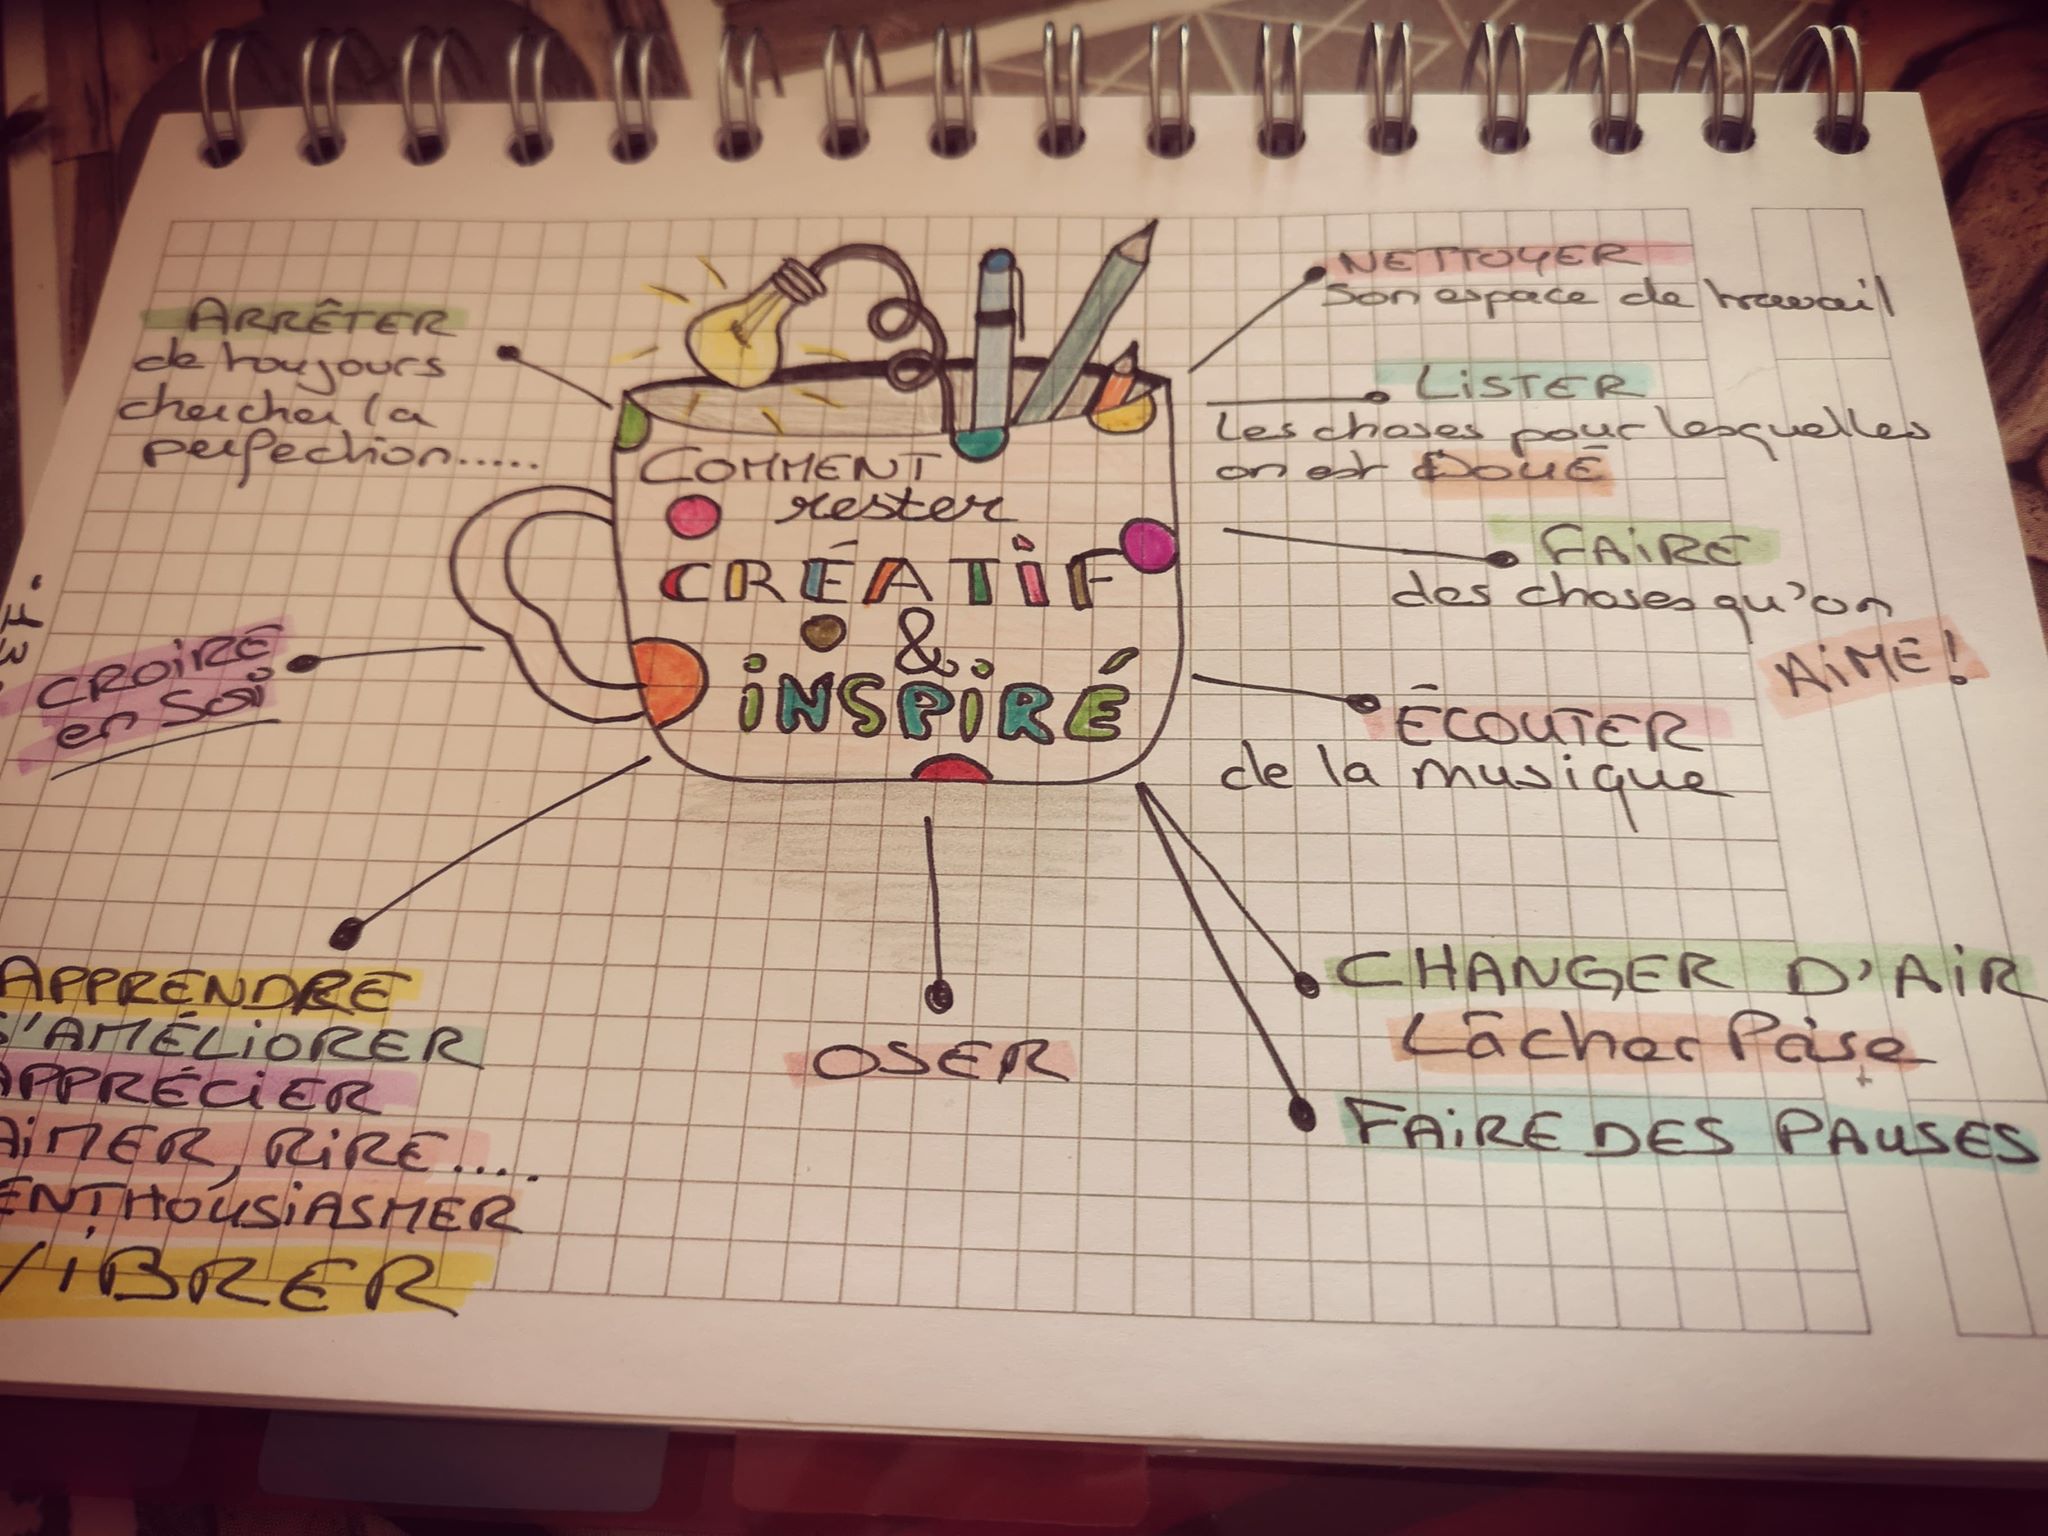 COMMENT
rester
CRÉATIF
&
INSPIRÉ
NETTOYER
son espace de travail
LISTER
les choses pour lesquelles
on est DOUÉ
FAIRE
des choses qu'on
AIME!
ÉCOUTER
de la musique
CHANGER D'AIR
Lâcher Prise
+
FAIRE DES PAUSES
OSER
APPRENDRE
S'AMÉLIORER
APPRÉCIER
AIMER, RIRE.....
ENTHOUSIASMER
VIBRER
CROIRE
en soi
ARRÊTER
de toujours
chercher la
perfection.....